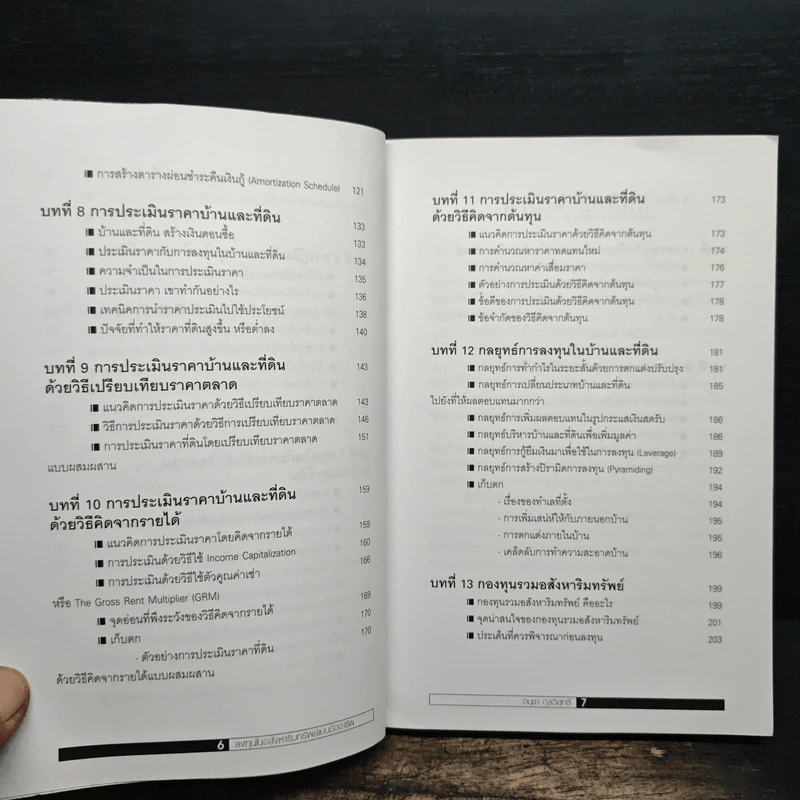 ■ การสร้างตารางผ่อนชำระคืนเงินกู้ (Amortization Schedule) 121
บทที่ 8 การประเมินราคาบ้านและที่ดิน 133
■ บ้านและที่ดิน สร้างเงินตอนซื้อ 133
■ ประเมินราคากับการลงทุนในบ้านและที่ดิน 134
■ ความจำเป็นในการประเมินราคา 135
■ ประเมินราคา เขาทำกันอย่างไร 136
■ เทคนิคการนำราคาประเมินไปใช้ประโยชน์ 138
■ ปัจจัยที่ทำให้ราคาที่ดินสูงขึ้น หรือต่ำลง 140
บทที่ 9 การประเมินราคาบ้านและที่ดิน 143
ด้วยวิธีเปรียบเทียบราคาตลาด
■ แนวคิดการประเมินราคาด้วยวิธีเปรียบเทียบราคาตลาด 143
■ วิธีการประเมินราคาด้วยวิธีการเปรียบเทียบราคาตลาด 146
■ การประเมินราคาที่ดินโดยเปรียบเทียบราคาตลาด 151
แบบผสมผสาน
บทที่ 10 การประเมินราคาบ้านและที่ดิน 159
ด้วยวิธีคิดจากรายได้
■ แนวคิดการประเมินราคาโดยคิดจากรายได้ 159
■ การประเมินด้วยวิธีใช้ Income Capitalization 160
■ การประเมินด้วยวิธีใช้ตัวคูณค่าเช่า 166
หรือ The Gross Rent Multiplier (GRM)
■ จุดอ่อนที่พึงระวังของวิธีคิดจากรายได้ 169
■ เก็บตก 170
- ตัวอย่างการประเมินราคาที่ดิน 170
ด้วยวิธีคิดจากรายได้แบบผสมผสาน
6 ลงทุนในอสังหาริมทรัพย์แบบมืออาชีพ
บทที่ 11 การประเมินราคาบ้านและที่ดิน 173
ด้วยวิธีคิดจากต้นทุน
■ แนวคิดการประเมินราคาด้วยวิธีคิดจากต้นทุน 173
■ การคำนวณหาราคาทดแทนใหม่ 174
■ การคำนวณหาค่าเสื่อมราคา 176
■ ตัวอย่างการประเมินด้วยวิธีคิดจากต้นทุน 177
■ ข้อดีของการประเมินด้วยวิธีคิดจากต้นทุน 178
■ ข้อจำกัดของวิธีคิดจากต้นทุน 178
บทที่ 12 กลยุทธ์การลงทุนในบ้านและที่ดิน 181
■ กลยุทธ์การทำกำไรในระยะสั้นด้วยการตกแต่งปรับปรุง 181
■ กลยุทธ์การเปลี่ยนประเภทบ้านและที่ดิน 185
ไปยังที่ให้ผลตอบแทนมากกว่า
■ กลยุทธ์การเพิ่มผลตอบแทนในรูปกระแสเงินสดรับ 186
■ กลยุทธ์บริหารบ้านและที่ดินเพื่อเพิ่มมูลค่า 186
■ กลยุทธ์การกู้ยืมเงินมาเพื่อใช้ในการลงทุน (Leverage) 189
■ กลยุทธ์การสร้างปิรามิดการลงทุน (Pyramiding) 192
■ เก็บตก 194
- เรื่องของทำเลที่ตั้ง 194
- การเพิ่มเสน่ห์ให้กับภายนอกบ้าน 195
- การตกแต่งภายในบ้าน 195
- เคล็ดลับการทำความสะอาดบ้าน 196
บทที่ 13 กองทุนรวมอสังหาริมทรัพย์ 199
■ กองทุนรวมอสังหาริมทรัพย์ คืออะไร 199
■ จุดน่าสนใจของกองทุนรวมอสังหาริมทรัพย์ 201
■ ประเด็นที่ควรพิจารณาก่อนลงทุน 203
อนุชา กุลวิสุทธิ์ 7